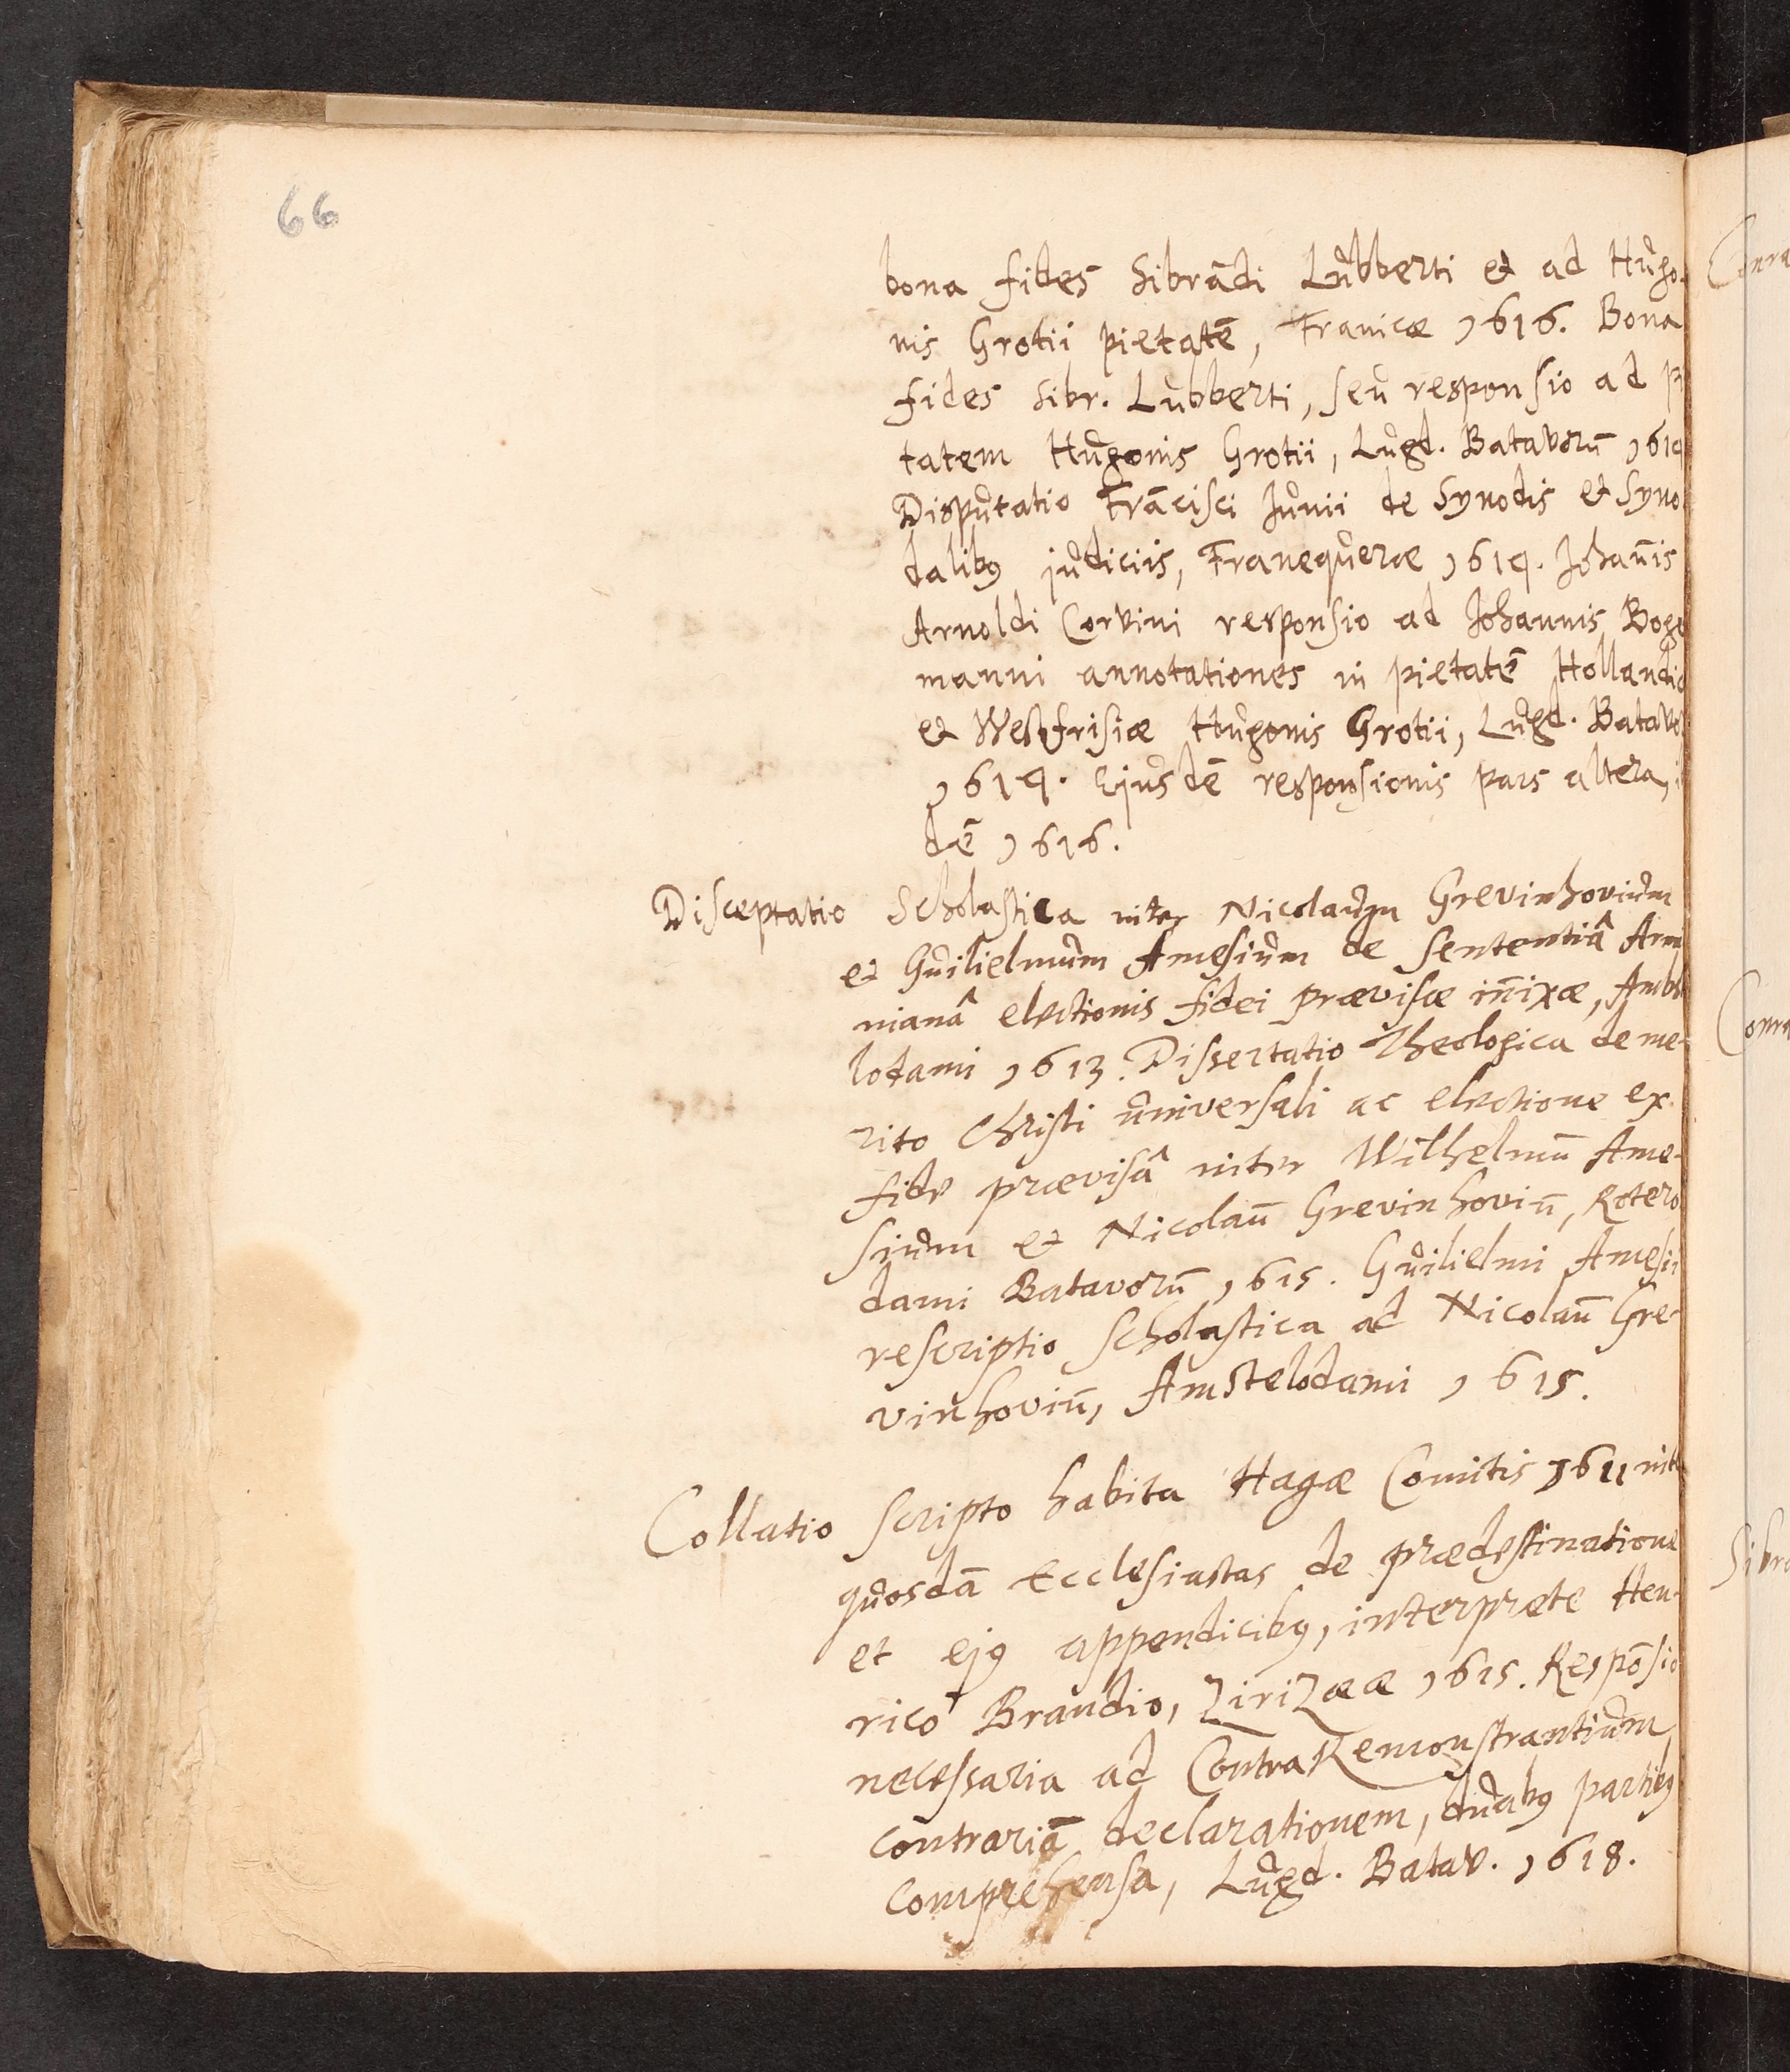 66
bona fides Sibrādi Lubberti et ad Hugo-
nis Grotii pietatē, Franicæ 1616. Bona
fides Sibr. Lubberti, seu responsio ad
tatem Hugonis Grotii, Lugd. Batavorū 1614
Disputatio Frācisci Junii de Synodis et Syno
dalibꝫ judiciis, Franequeræ 1614. Johān̄is
Arnoldi Corvini responsio ad Johannis Boge
manni annotationes in pietatē Hollandiæ
et Westfrisiæ Hugonis Grotii, Lugd. Batavo
1614. Ejusdē responsionis pars altera, i
dē 1616.
Disceptatio Scholastica inter Nicolaum Grevinhovium
et Guilielmum Amesium de sententiâ Armi
nianâ electionis fidei prævisæ in̄ixæ, Amste
lodami 1613. Dissertatio Theologica de me-
rito Christi universali ac electione ex
fide prævisâ inter Wilhelmū Ame-
sium et Nicolaū Grevinhoviū, Rotero
dami Batavorū 1615. Guilielmi Amesii
rescriptio scholastica ad Nicolaū Gre-
vinhoviū, Amstelodami 1615.
Collatio scripto habita Hagæ Comitis 1611 inte
quosdā Ecclesiastas de prædestinatione
et ejꝫ appendicibꝫ, interprete Hen-
rico Brandio, Zirizææ 1615. Respōsio
necessaria ad ContraRemonstrantium
contrariā declarationem, duabꝫ partibꝫ
comprehensa, Lugd. Batav. 1618.